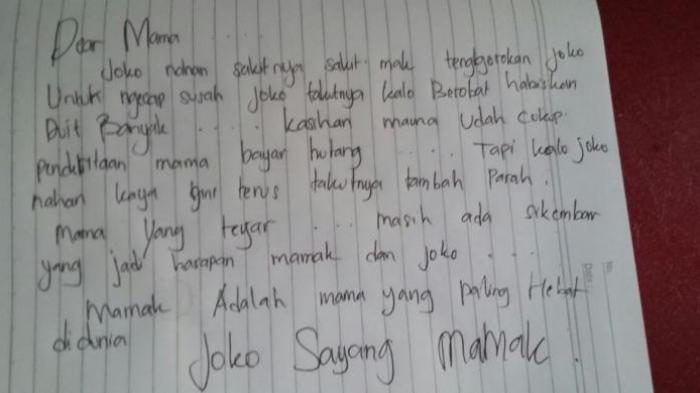 Dear Mama ....
Joko nahan sakitnya sakit mak tenggorokan joko
Untuk ngecap susah joko takutnya kalo Berobat habiskan
Duit Banyak .... kasihan mama udah cukup
mama bayar hutang .... Tapi kalo joko
nahan kaya gini terus takutnya tambah Parah.
Mama Yang tegar .... masih ada sikembar
yang jadi harapan mamak dan joko ...
Mamak Adalah mama yang paling Hebat
di dunia
Joko Sayang Mamak.